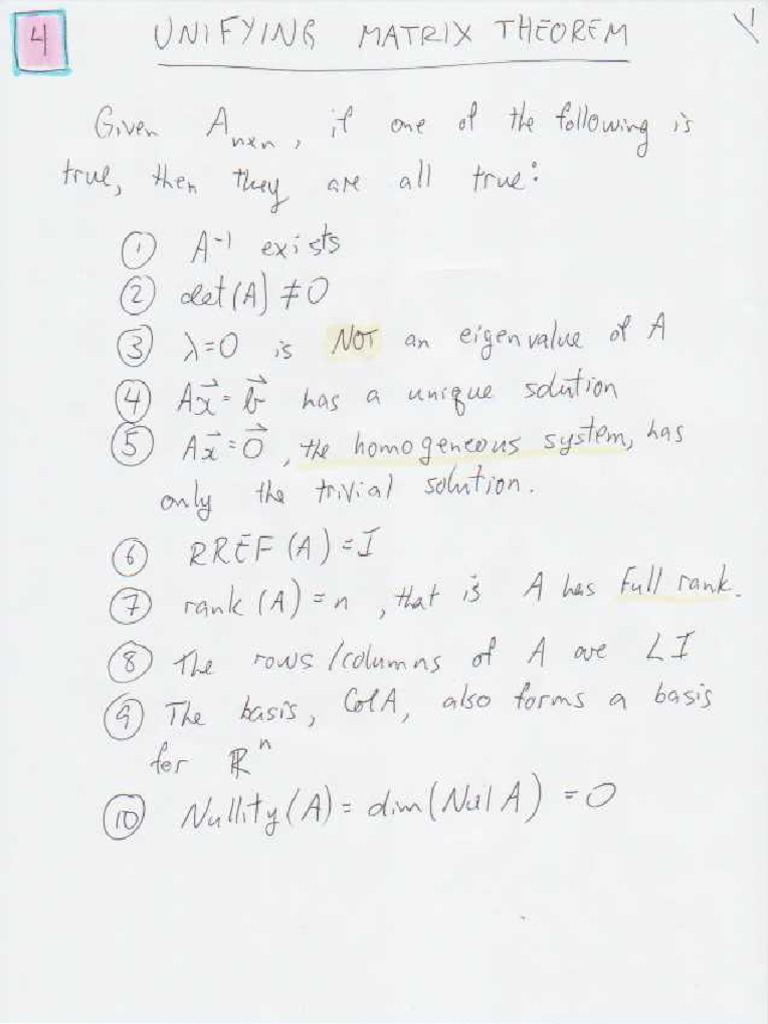 4 UNIFYING MATRIX THEOREM
Given Aₙₓₙ, if one of the following is
true, then they are all true:
① A⁻¹ exists
② det(A) ≠ 0
③ λ=0 is NOT an eigenvalue of A
④ Ax⃗ = b⃗ has a unique solution
⑤ Ax⃗ = 0⃗, the homogeneous system, has
only the trivial solution.
⑥ RREF(A) = I
⑦ rank(A) = n, that is A has Full rank.
⑧ The rows/columns of A are LI
⑨ The basis, ColA, also forms a basis
for ℝⁿ
⑩ Nullity(A) = dim(Nul A) = 0